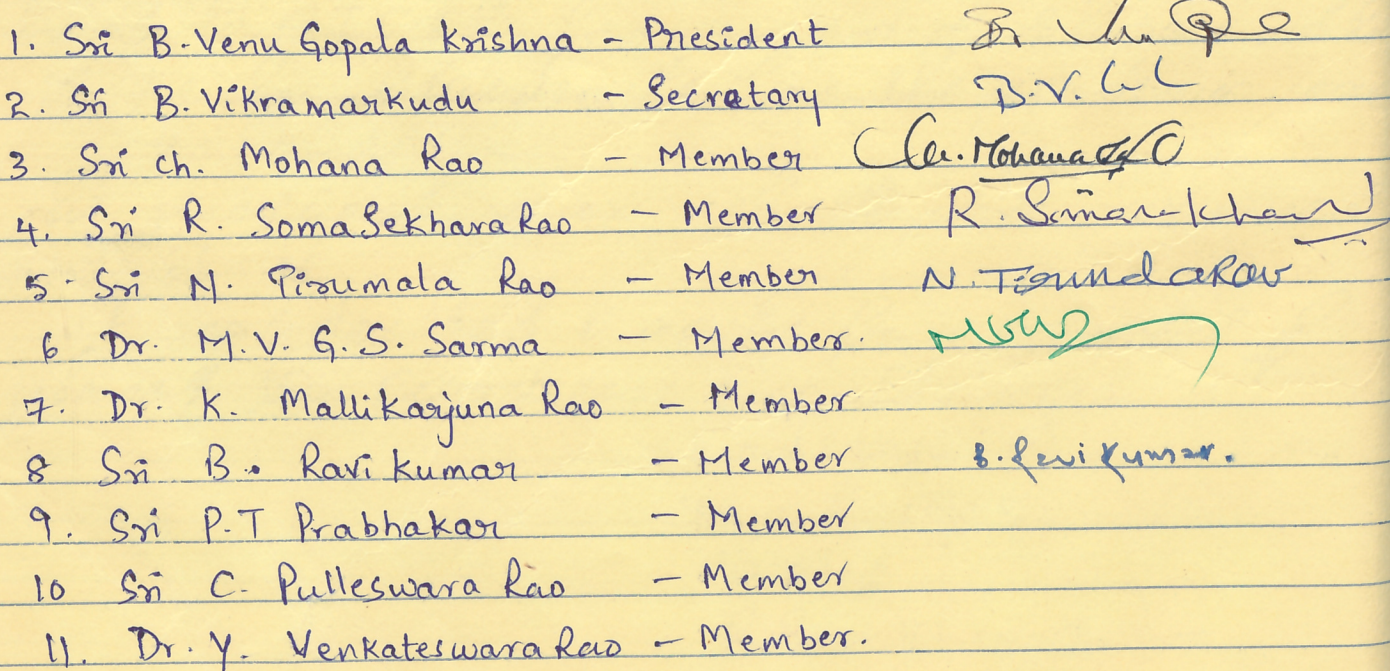 1. Sri B. Venu Gopala Krishna - President
2. Sri B. Vikramarkudu - Secretary B.V.
3. Sri ch. Mohana Rao - Member Ch. Mohana Rao
4. Sri R. Soma Sekhara Rao - Member R.
5. Sri N. Tirumala Rao - Member N.
6 Dr. M.V. G. S. Sarma - Member.
7. Dr. K. Mallikarjuna Rao - Member
8 Sri B. Ravi kumar - Member B. Ravi Kumar.
9. Sri P.T Prabhakar - Member
10 Sri C. Pulleswara Rao - Member
11. Dr. Y. Venkateswara Rao - Member.